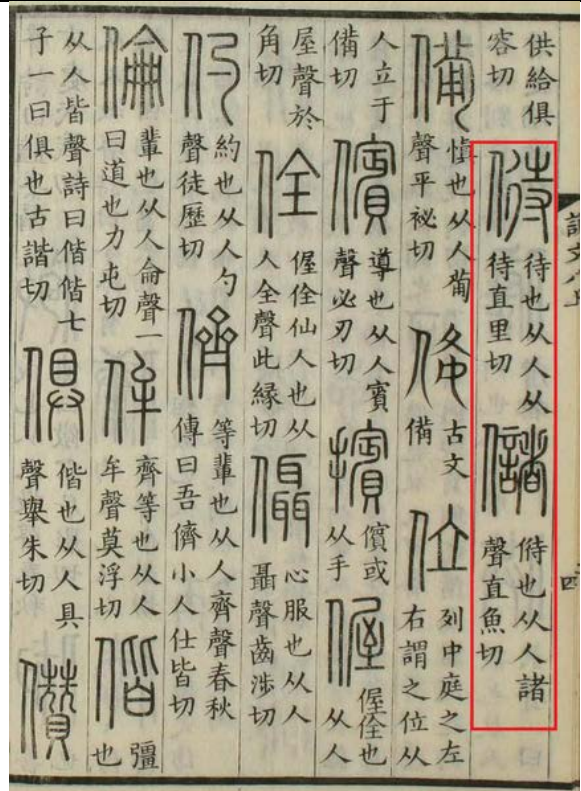 供給俱容切偫待也从人从待直里切儲偫也从人諸聲直魚切
備慎也从人𤰇聲平祕切𠈍古文備位列中庭之左右謂之位从
人立于備切儐導也从人賓聲必刃切擯儐或从手偓偓佺也从人
屋聲於角切佺偓佺仙人也从人全聲此緣切㒤心服也从人聶聲齒涉切
仢約也从人勺聲徒歷切儕等輩也从人齊聲春秋傳曰吾儕小人仕皆切
倫輩也从人侖聲一曰道也力屯切侔齊等也从人牟聲莫浮切偕彊也
从人皆聲詩曰偕偕士子一曰俱也古諧切俱偕也从人具聲舉朱切儹